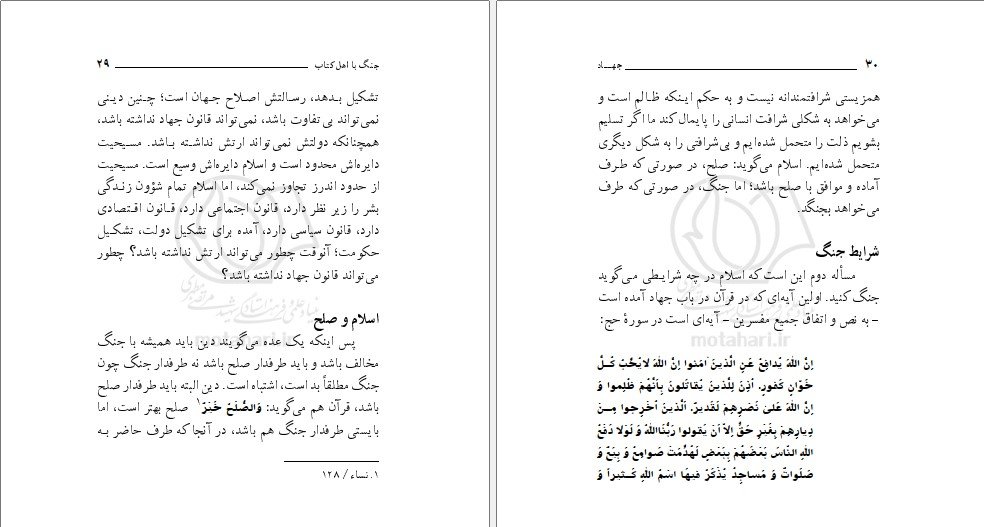 جنگ با اهل کتاب ۲۹
تشکیل بدهد، رسالتش اصلاح جهان است؛ چنین دینی
نمی‌تواند بی تفاوت باشد، نمی‌تواند قانون جهاد نداشته باشد،
همچنانکه دولتش نمی‌تواند ارتش نداشته باشد. مسیحیت
دایره‌اش محدود است و اسلام دایره‌اش وسیع است. مسیحیت
از حدود اندرز تجاوز نمی‌کند، اما اسلام تمام شؤون زندگی
بشر را زیر نظر دارد، قانون اجتماعی دارد، قانون اقتصادی
دارد، قانون سیاسی دارد، آمده برای تشکیل دولت، تشکیل
حکومت؛ آنوقت چطور می‌تواند ارتش نداشته باشد؟ چطور
می‌تواند قانون جهاد نداشته باشد؟
اسلام و صلح
پس اینکه یک عده می‌گویند دین باید همیشه با جنگ
مخالف باشد و باید طرفدار صلح باشد نه طرفدار جنگ چون
جنگ مطلقاً بد است، اشتباه است. دین البته باید طرفدار صلح
باشد، قرآن هم می‌گوید: وَالصُّلْحُ خَیْرٌ۱ صلح بهتر است، اما
بایستی طرفدار جنگ هم باشد، در آنجا که طرف حاضر به
۱. نساء / ۱۲۸
۳۰ جهاد
همزیستی شرافتمندانه نیست و به حکم اینکه ظالم است و
می‌خواهد به شکلی شرافت انسانی را پایمال کند ما اگر تسلیم
بشویم ذلت را متحمل شده‌ایم و بی‌شرافتی را به شکل دیگری
متحمل شده‌ایم. اسلام می‌گوید: صلح، در صورتی که طرف
آماده و موافق با صلح باشد؛ اما جنگ، در صورتی که طرف
می‌خواهد بجنگد.
شرایط جنگ
مسأله دوم این است که اسلام در چه شرایطی می‌گوید
جنگ کنید. اولین آیه‌ای که در قرآن در باب جهاد آمده است
– به نص و اتفاق جمیع مفسرین – آیه‌ای است در سورهٔ حج:
اِنَّ اللهَ یُدافِعُ عَنِ الَّذینَ امَنوا اِنَّ اللهَ لایُحِبُّ کُلَّ
خَوّانٍ کَفورٍ. اُذِنَ لِلَّذینَ یُقاتَلونَ بِاَنَّهُمْ ظُلِموا وَ
اِنَّ اللهَ عَلی نَصْرِهِمْ لَقَدیرٌ. اَلَّذینَ اُخْرِجوا مِنْ
دِیارِهِمْ بِغَیْرِ حَقٍّ اِلّا اَنْ یَقولوا رَبُّنَا اللهُ وَ لَوْ لا دَفْعُ
اللهِ النّاسَ بَعْضَهُمْ بِبَعْضٍ لَهُدِّمَتْ صَوامِعُ وَ بِیَعٌ وَ
صَلَواتٌ وَ مَساجِدُ یُذْکَرُ فیهَا اسْمُ اللهِ کَثیراً وَ
motahari.ir
motahari.ir